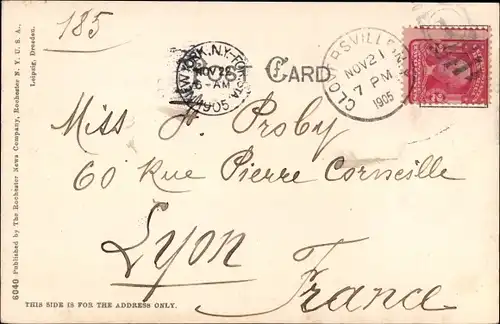 185
NEW YORK, N.Y.
NOV 22
6-AM
1905
POST CARD
GLOVERSVILLE, N.Y.
NOV 21
7 PM
1905
Miss H. Proby
60 Rue Pierre Corneille
Lyon
France
6040 Published by The Rochester News Company, Rochester N. Y. U. S. A.,
Leipzig, Dresden.
THIS SIDE IS FOR THE ADDRESS ONLY.